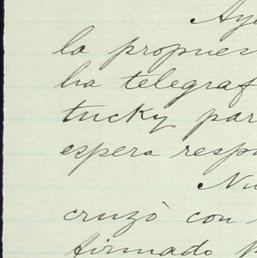 Aye
la propues
ha telegraf
tucky par
espera respu
Nu
cruzò con
firmado